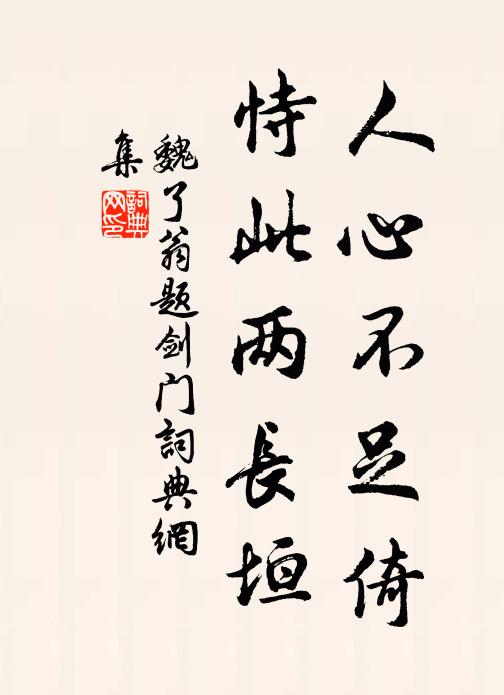 人心不足倚
恃此两長垣
魏了翁题剑门詞典網
集
詞典网印